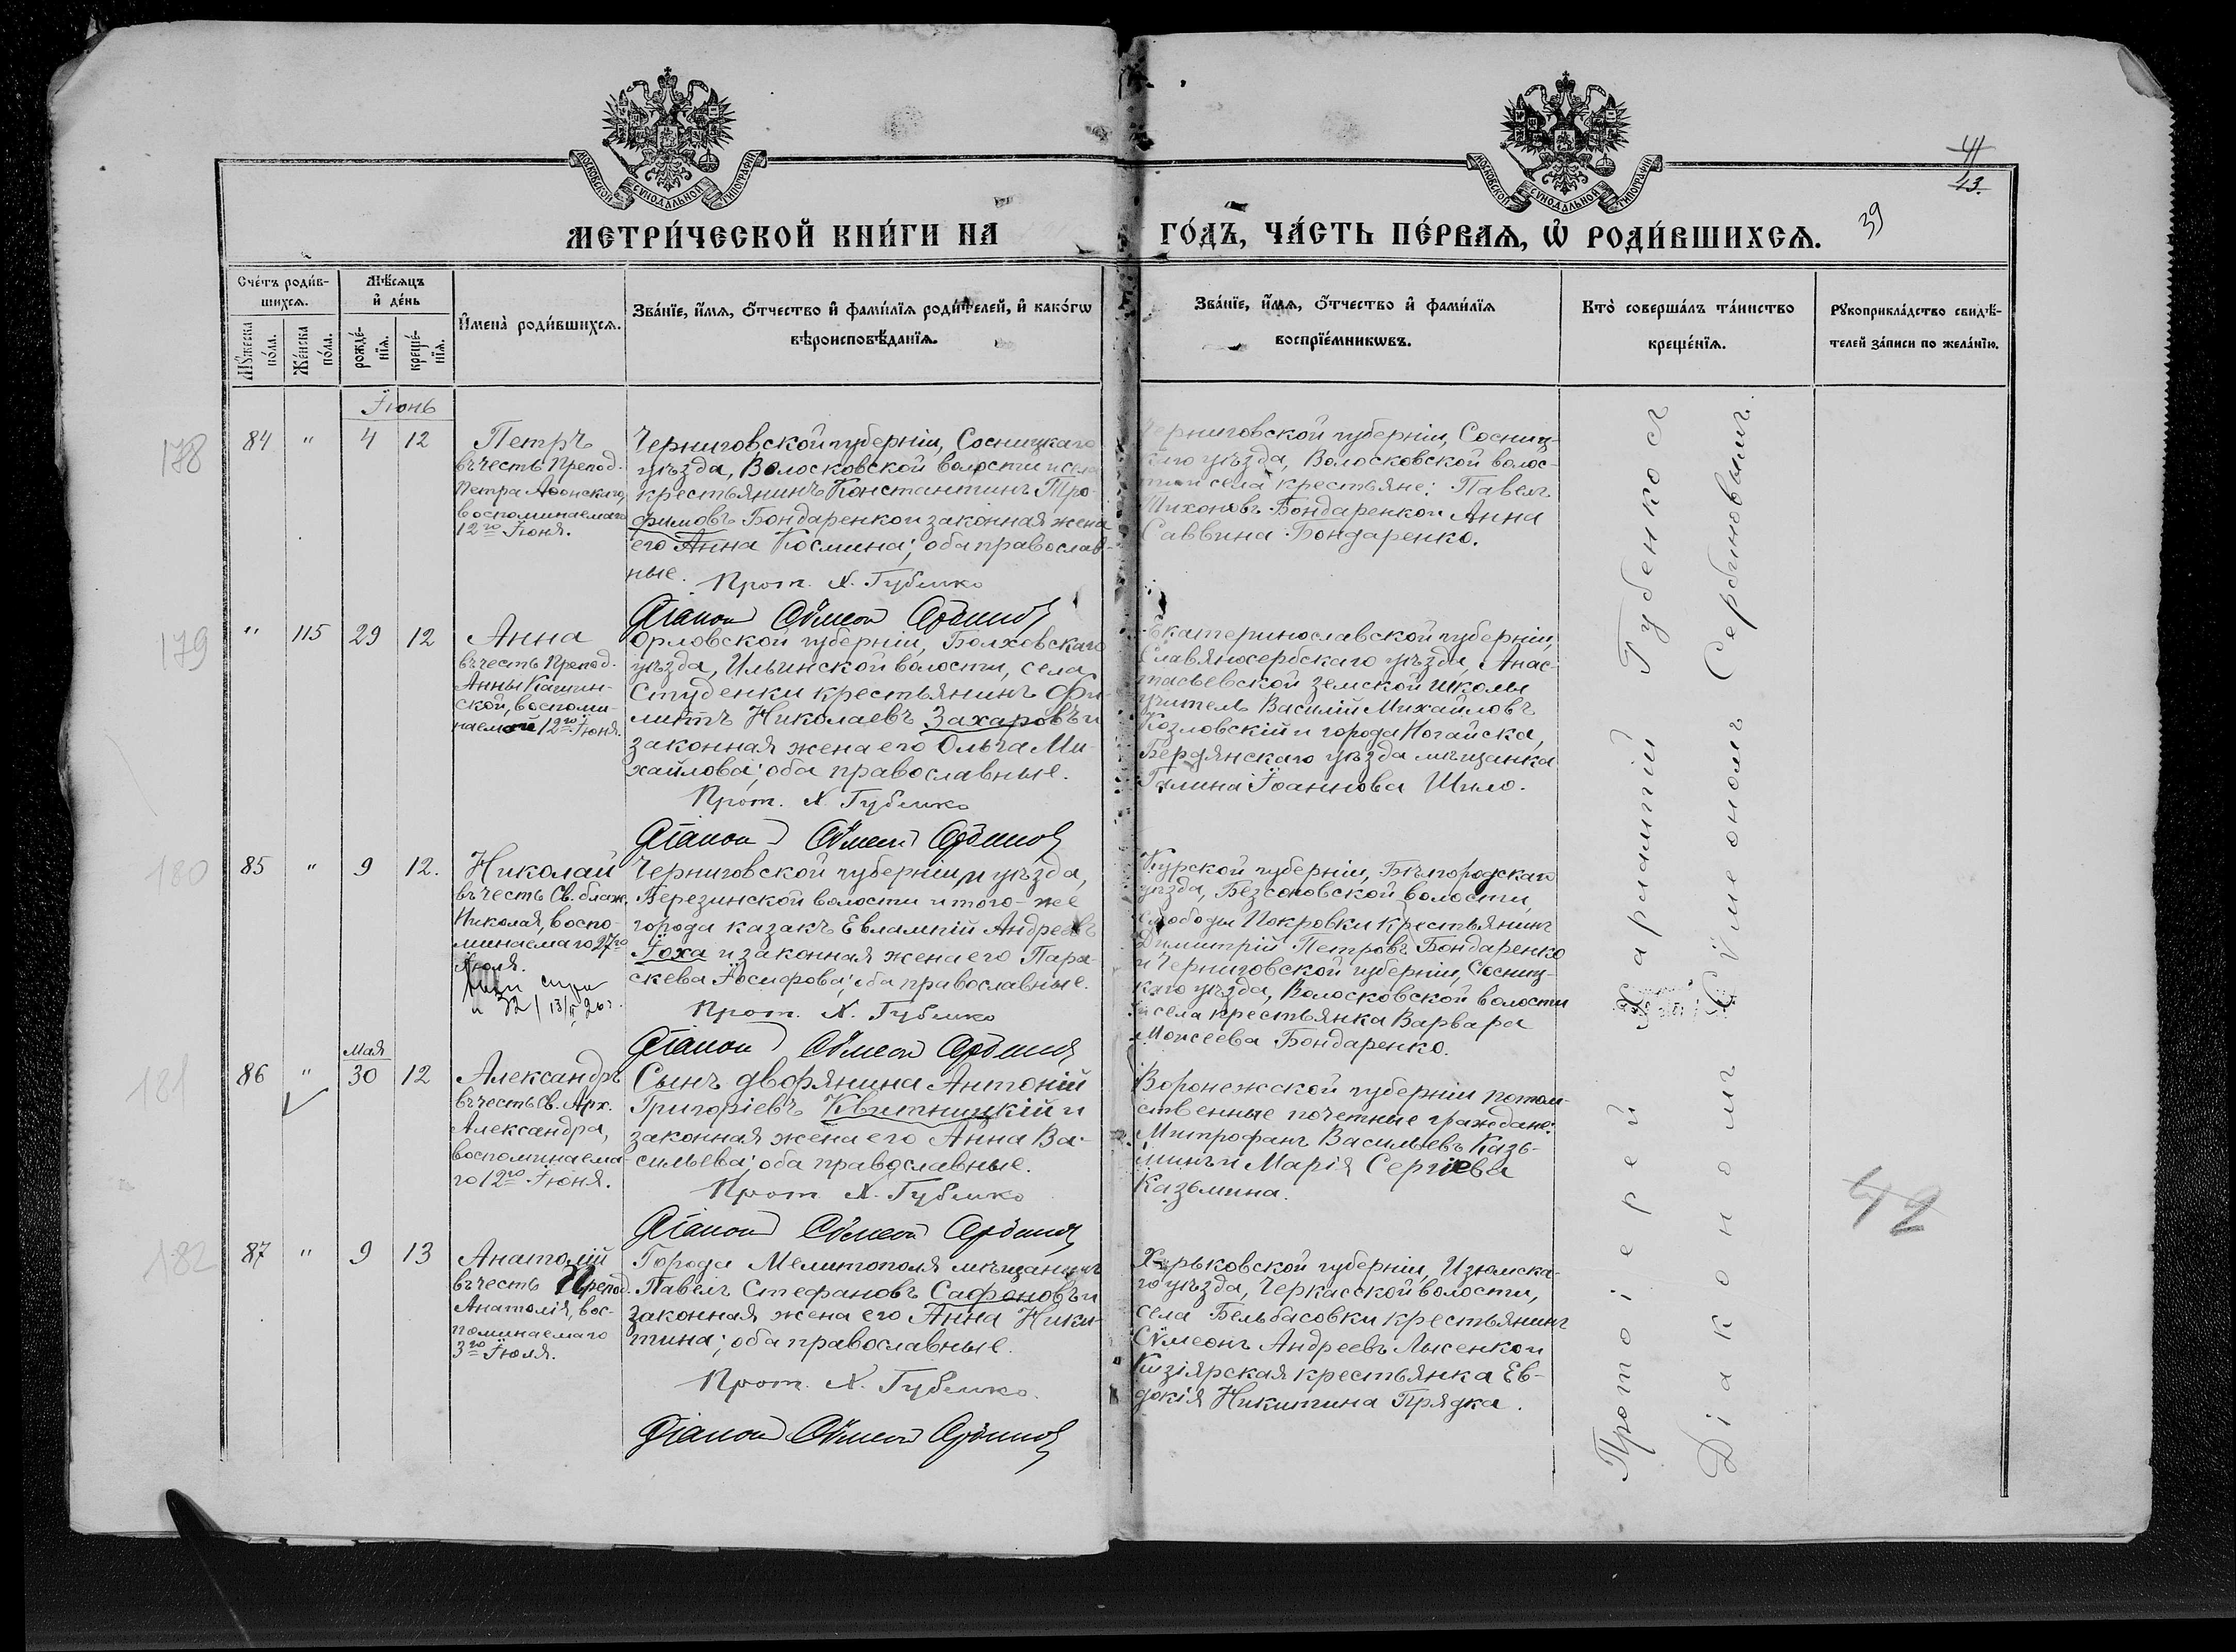 МОСКОВСКОЙ СѴНОДАЛЬНОЙ ТИПОГРАФІИ
МОСКОВСКОЙ СѴНОДАЛЬНОЙ ТИПОГРАФІИ
41
43.
39
МЕТРИ́ЧЕСКОЙ КНИ́ГИ НА ГО́ДЪ, ЧА́СТЬ ПЕ́РВАѦ, Ѡ҆ РОДИ́ВШИХСѦ.
Сче́тъ роди́в-
шихсѧ.
Мꙋ́жеска по́ла.
Же́нска по́ла.
Мѣ́сѧцъ
и҆ де́нь
рожде́-
нїѧ.
креще́-
нїѧ.
И҆мена̀ роди́вшихсѧ.
Зва́нїе, и҆́мѧ, ѻ҆́тчество и҆ фами́лїѧ роди́телей, и҆ како́гѡ
вѣроисповѣ́данїѧ.
Зва́нїе, и҆́мѧ, ѻ҆́тчество и҆ фами́лїѧ
воспрїе́мникѡвъ.
Кто̀ соверша́лъ та́инство
креще́нїѧ.
Рꙋкоприкла́дство свидѣ́-
телей за́писи по жела́нїю.
Іюнь
178
84 " 4 12
Петръ
въ честь Препод.
Петра Аѳонскаго,
воспоминаемаго
12го Іюня.
Черниговской губерніи, Сосницкаго
уѣзда, Волосковской волости и села
крестьянинъ Константинъ Тро-
фимовъ Бондаренко и законная жена
его Анна Косьмина; оба православ-
ные.
Прот. Х. Губенко
Діаконъ Сѵмеонъ Сербиновъ
Черниговской губерніи, Сосниц-
каго уѣзда, Волосковской волос-
ти и села крестьяне: Павелъ
Тихоновъ Бондаренко и Анна
Саввина Бондаренко.
179
" 115 29 12
Анна
въ честь Препод.
Анны Кашин-
ской, воспоми-
наемой 12го Іюня.
Орловской губерніи, Болховскаго
уѣзда, Ильинской волости, села
Студенки крестьянинъ Фи-
липпъ Николаевъ Захаровъ и
законная жена его Ольга Ми-
хайлова; оба православные.
Прот. Х. Губенко
Діаконъ Сѵмеонъ Сербиновъ
Екатеринославской губерніи,
Славяносербскаго уѣзда, Анас-
тасьевской земской школы
учитель Василій Михайловъ
Козловскій и города Ногайска,
Бердянскаго уѣзда мѣщанка
Галина Іоаннова Шило.
180
85 " 9 12.
Николай
въ честь Св. блаж.
Николая, воспо-
минаемаго 27го
Іюля.
32 / 13/II 26 г.
Черниговской губерніи и уѣзда,
Березинской волости и того-же
города казакъ Евлампій Андреевъ
Іоха и законная жена его Пара-
скева Іосифова; оба православные.
Прот. Х. Губенко
Діаконъ Сѵмеонъ Сербиновъ
Курской губерніи, Бѣлгородскаго
уѣзда, Безсоновской волости,
слободы Покровки крестьянинъ
Димитрій Петровъ Бондаренко
и Черниговской губерніи, Сосниц-
каго уѣзда, Волосковской волости
и села крестьянка Варвара
Моисеева Бондаренко.
181
Мая
86 " 30 12
Александръ
въ честь Св. Арх.
Александра,
воспоминаема-
го 12го Іюня.
Сынъ дворянина Антоній
Григоріевъ Квитницкій и
законная жена его Анна Ва-
сильева; оба православные.
Прот. Х. Губенко
Діаконъ Сѵмеонъ Сербиновъ
Воронежской губерніи потом-
ственные почетные граждане:
Митрофанъ Васильевъ Казь-
минъ и Марія Сергіева
Казьмина.
42
182
87 " 9 13
Анатолій
въ честь Препод.
Анатолія, вос-
поминаемаго
3го Іюля.
Города Мелитополя мѣщанинъ
Павелъ Стефановъ Сафоновъ и
законная жена его Анна Ники-
тина; оба православные.
Прот. Х. Губенко.
Діаконъ Сѵмеонъ Сербиновъ
Харьковской губерніи, Изюмска-
го уѣзда, Черкасской волости,
села Бельбасовки крестьянинъ
Сѵмеонъ Андреевъ Лысенко и
Кизіярская крестьянка Ев-
докія Никитина Прядка.
Протоіерей Харлампій Губенко съ
Діакономъ Сѵмеономъ Сербиновымъ.